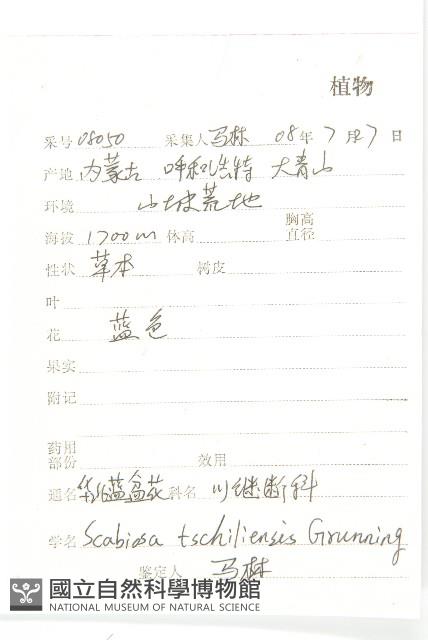 植物
采号 08050 采集人 马林 08年7月7日
产地 内蒙古 呼和浩特 大青山
环境 山坡荒地
胸高
海拔 1700m 体高 直径
性状 草本 树皮
叶
花 蓝色
果实
附记
药用
部份 效用
通名 华北蓝盆花 科名 川续断科
学名 Scabiosa tschiliensis Grunning
鉴定人 马林
國立自然科學博物館
NATIONAL MUSEUM OF NATURAL SCIENCE